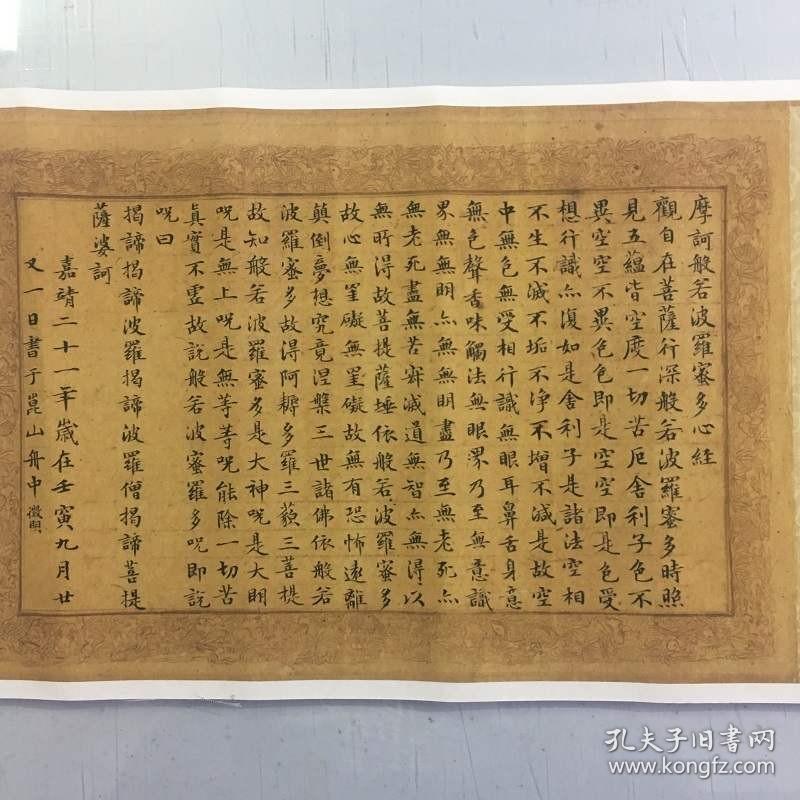 摩訶般若波羅蜜多心経
觀自在菩薩行深般若波羅蜜多時照
見五蘊皆空度一切苦厄舍利子色不
異空空不異色色即是空空即是色受
想行識亦復如是舍利子是諸法空相
不生不滅不垢不淨不增不減是故空
中無色無受相行識無眼耳鼻舌身意
無色聲香味觸法無眼界乃至無意識
界無無明亦無無明盡乃至無老死亦
無老死盡無苦寂滅道無智亦無得以
無所得故菩提薩埵依般若波羅蜜多
故心無罣礙無罣礙故無有恐怖遠離
顛倒夢想究竟涅槃三世諸佛依般若
波羅蜜多故得阿耨多羅三藐三菩提
故知般若波羅蜜多是大神呪是大明
呪是無上呪是無等等呪能除一切苦
真實不虛故説般若波蜜羅多呪即説
呪曰
揭諦揭諦波羅揭諦波羅僧揭諦菩提
薩婆訶
嘉靖二十一年歲在壬寅九月廿
又一日書于崑山舟中徵明
孔夫子旧書网
www.kongfz.com